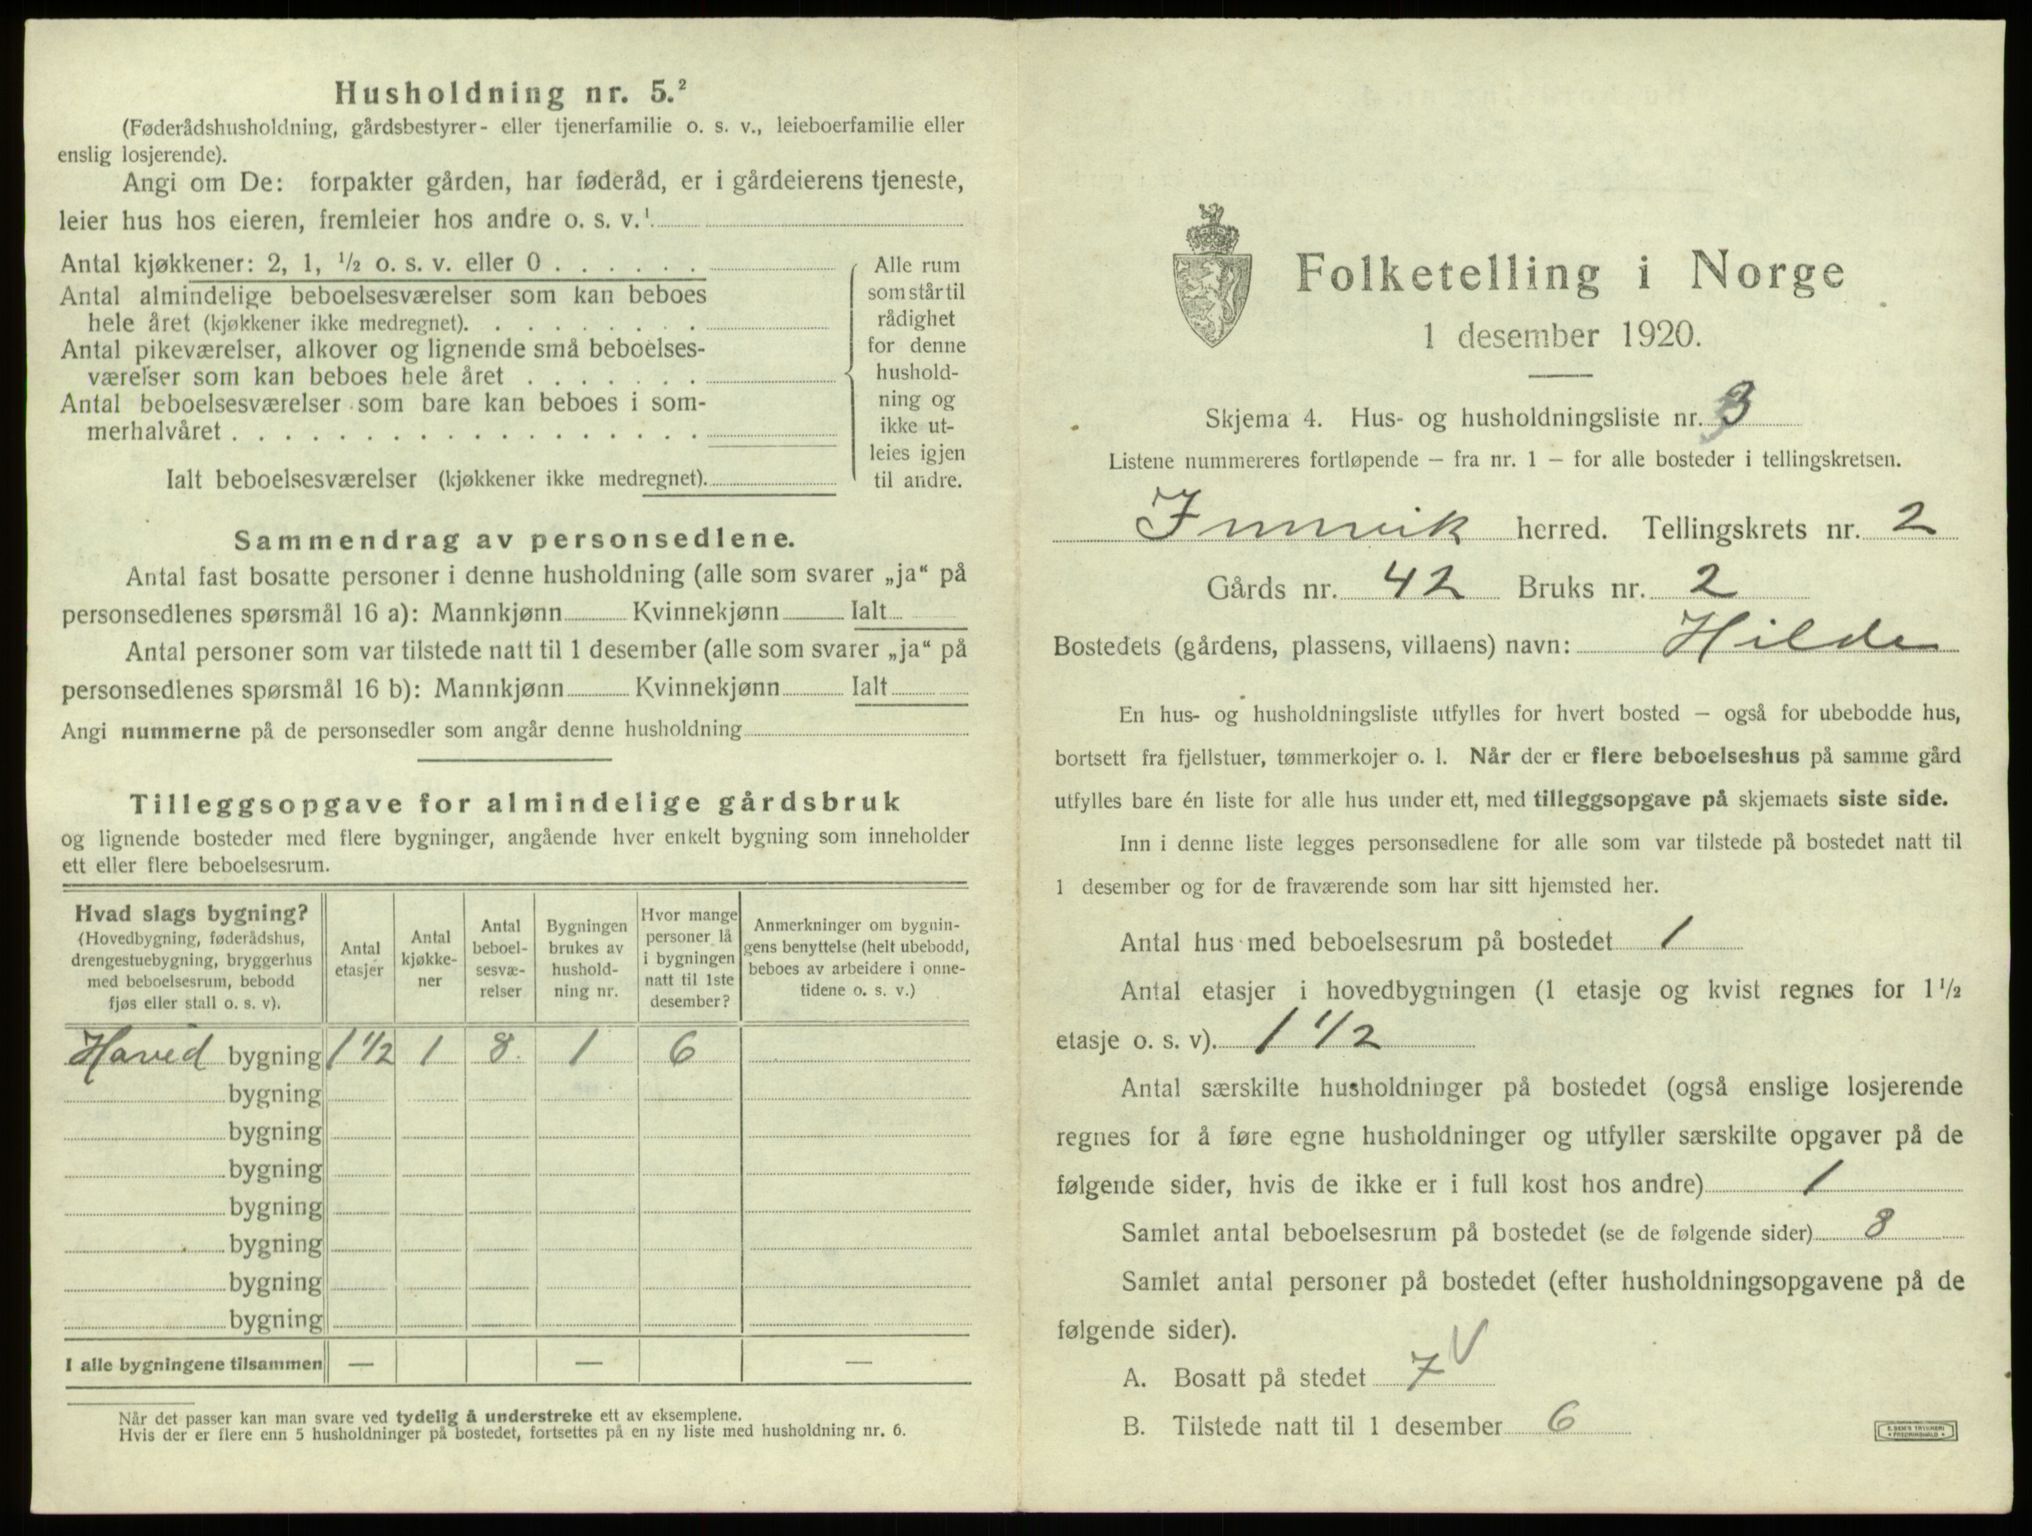 Husholdning nr. 5.²
(Føderådshusholdning, gårdsbestyrer- eller tjenerfamilie o. s. v., leieboerfamilie eller
enslig losjerende).
Angi om De: forpakter gården, har føderåd, er i gårdeierens tjeneste,
leier hus hos eieren, fremleier hos andre o. s. v.¹
Antal kjøkkener: 2, 1, ½ o. s. v. eller 0 . . . . . .
Antal almindelige beboelsesværelser som kan beboes
hele året (kjøkkener ikke medregnet). . . . . . . . .
Antal pikeværelser, alkover og lignende små beboelses-
værelser som kan beboes hele året . . . . . . .
Antal beboelsesværelser som bare kan beboes i som-
merhalvåret . . . . . . . . . . . . . . . . . .
Ialt beboelsesværelser (kjøkkener ikke medregnet).
Alle rum
som står til
rådighet
for denne
hushold-
ning og
ikke ut-
leies igjen
til andre.
Sammendrag av personsedlene.
Antal fast bosatte personer i denne husholdning (alle som svarer „ja“ på
personsedlenes spørsmål 16 a): Mannkjønn Kvinnekjønn Ialt
Antal personer som var tilstede natt til 1 desember (alle som svarer „ja“ på
personsedlenes spørsmål 16 b): Mannkjønn Kvinnekjønn Ialt
Angi nummerne på de personsedler som angår denne husholdning
Tilleggsopgave for almindelige gårdsbruk
og lignende bosteder med flere bygninger, angående hver enkelt bygning som inneholder
ett eller flere beboelsesrum.
Hvad slags bygning?
(Hovedbygning, føderådshus,
drengestuebygning, bryggerhus
med beboelsesrum, bebodd
fjøs eller stall o. s. v).
Antal
etasjer
Antal
kjøkke-
ner
Antal
beboel-
sesvæ-
relser
Bygningen
brukes av
hushold-
ning nr.
Hvor mange
personer lå
i bygningen
natt til 1ste
desember?
Anmerkninger om bygnin-
gens benyttelse (helt ubebodd,
beboes av arbeidere i onne-
tidene o. s. v.)
Hoved bygning 1 ½ 1 8. 1 6
bygning
bygning
bygning
bygning
bygning
bygning
bygning
I alle bygningene tilsammen — — —
Når det passer kan man svare ved tydelig å understreke ett av eksemplene.
Hvis der er flere enn 5 husholdninger på bostedet, fortsettes på en ny liste med husholdning nr. 6.
Folketelling i Norge
1 desember 1920.
Skjema 4. Hus- og husholdningsliste nr. 3
Listene nummereres fortløpende – fra nr. 1 – for alle bosteder i tellingskretsen.
Innvik herred. Tellingskrets nr. 2
Gårds nr. 42 Bruks nr. 2
Bostedets (gårdens, plassens, villaens) navn: Hilde
En hus- og husholdningsliste utfylles for hvert bosted – også for ubebodde hus,
bortsett fra fjellstuer, tømmerkojer o. l. Når der er flere beboelseshus på samme gård
utfylles bare én liste for alle hus under ett, med tilleggsopgave på skjemaets siste side.
Inn i denne liste legges personsedlene for alle som var tilstede på bostedet natt til
1 desember og for de fraværende som har sitt hjemsted her.
Antal hus med beboelsesrum på bostedet 1
Antal etasjer i hovedbygningen (1 etasje og kvist regnes for 1½
etasje o. s. v). 1 1/2
Antal særskilte husholdninger på bostedet (også enslige losjerende
regnes for å føre egne husholdninger og utfyller særskilte opgaver på de
følgende sider, hvis de ikke er i full kost hos andre) 1
Samlet antal beboelsesrum på bostedet (se de følgende sider) 8
Samlet antal personer på bostedet (efter husholdningsopgavene på de
følgende sider).
A. Bosatt på stedet 7 V
B. Tilstede natt til 1 desember 6